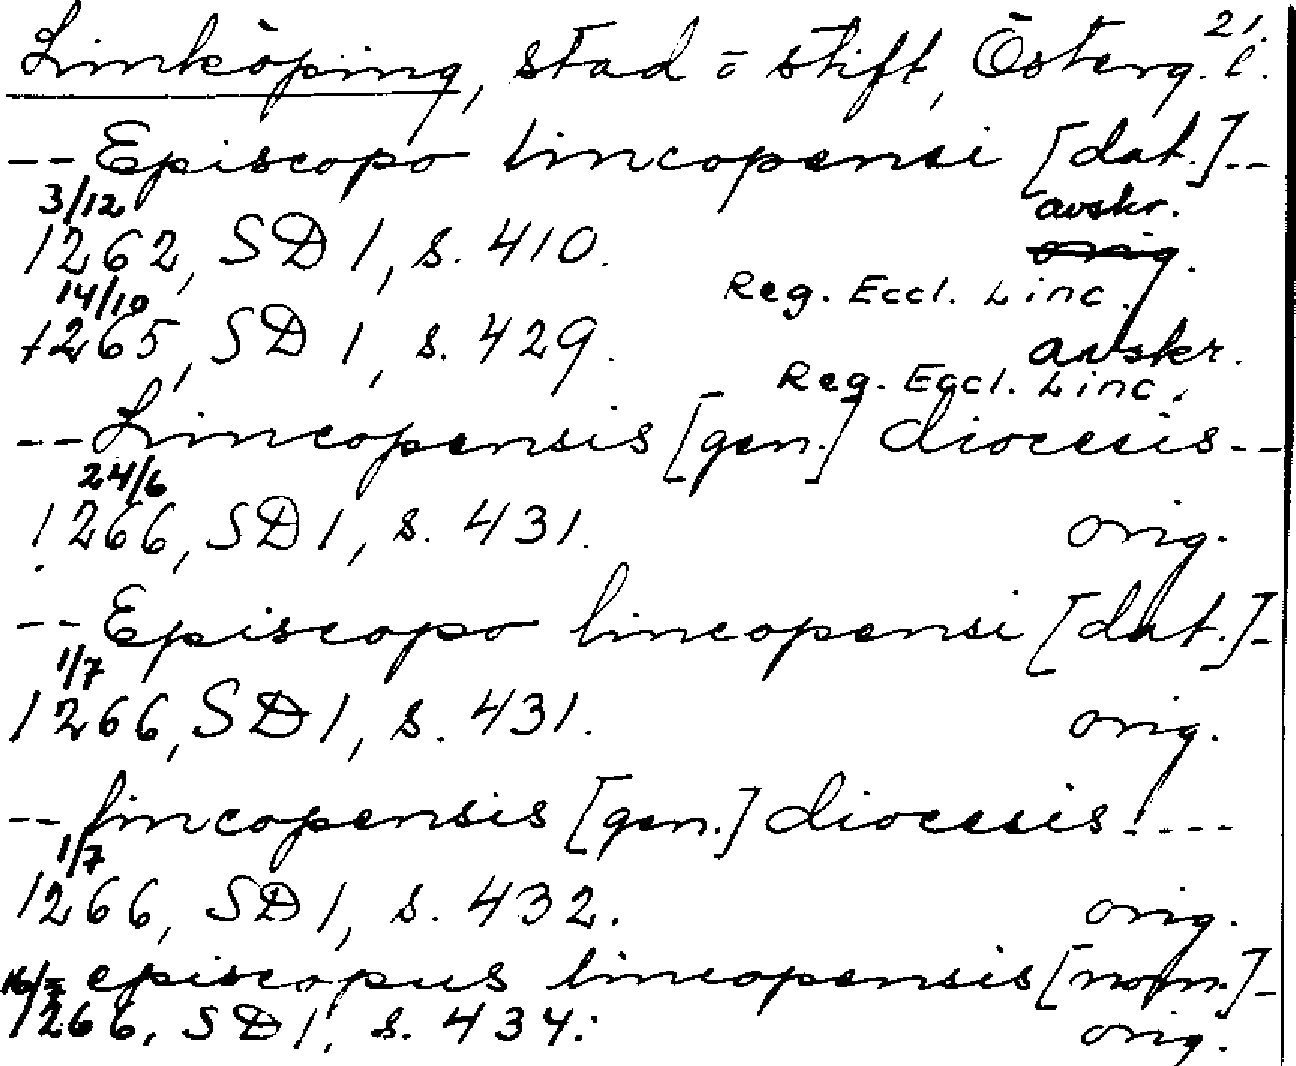 21.
Linköping, stad o stift, Österg. l.
-- Episcopo lincopensi [dat.] --
3/12 avskr.
1262, SD 1, s. 410. orig.
14/10 Reg. Eccl. Linc.
1265, SD 1, s. 429. avskr.
Reg. Eccl. Linc.
-- Lincopensis [gen.] diocesis --
24/6
1266, SD 1, s. 431. orig.
-- Episcopo lincopensi [dat.] -
1/7
1266, SD 1, s. 431. orig.
-- lincopensis [gen.] diocesis ----
1/7
1266, SD 1, s. 432. orig.
episcopus lincopensis [nom.] -
1266, SD 1, s. 434. orig.